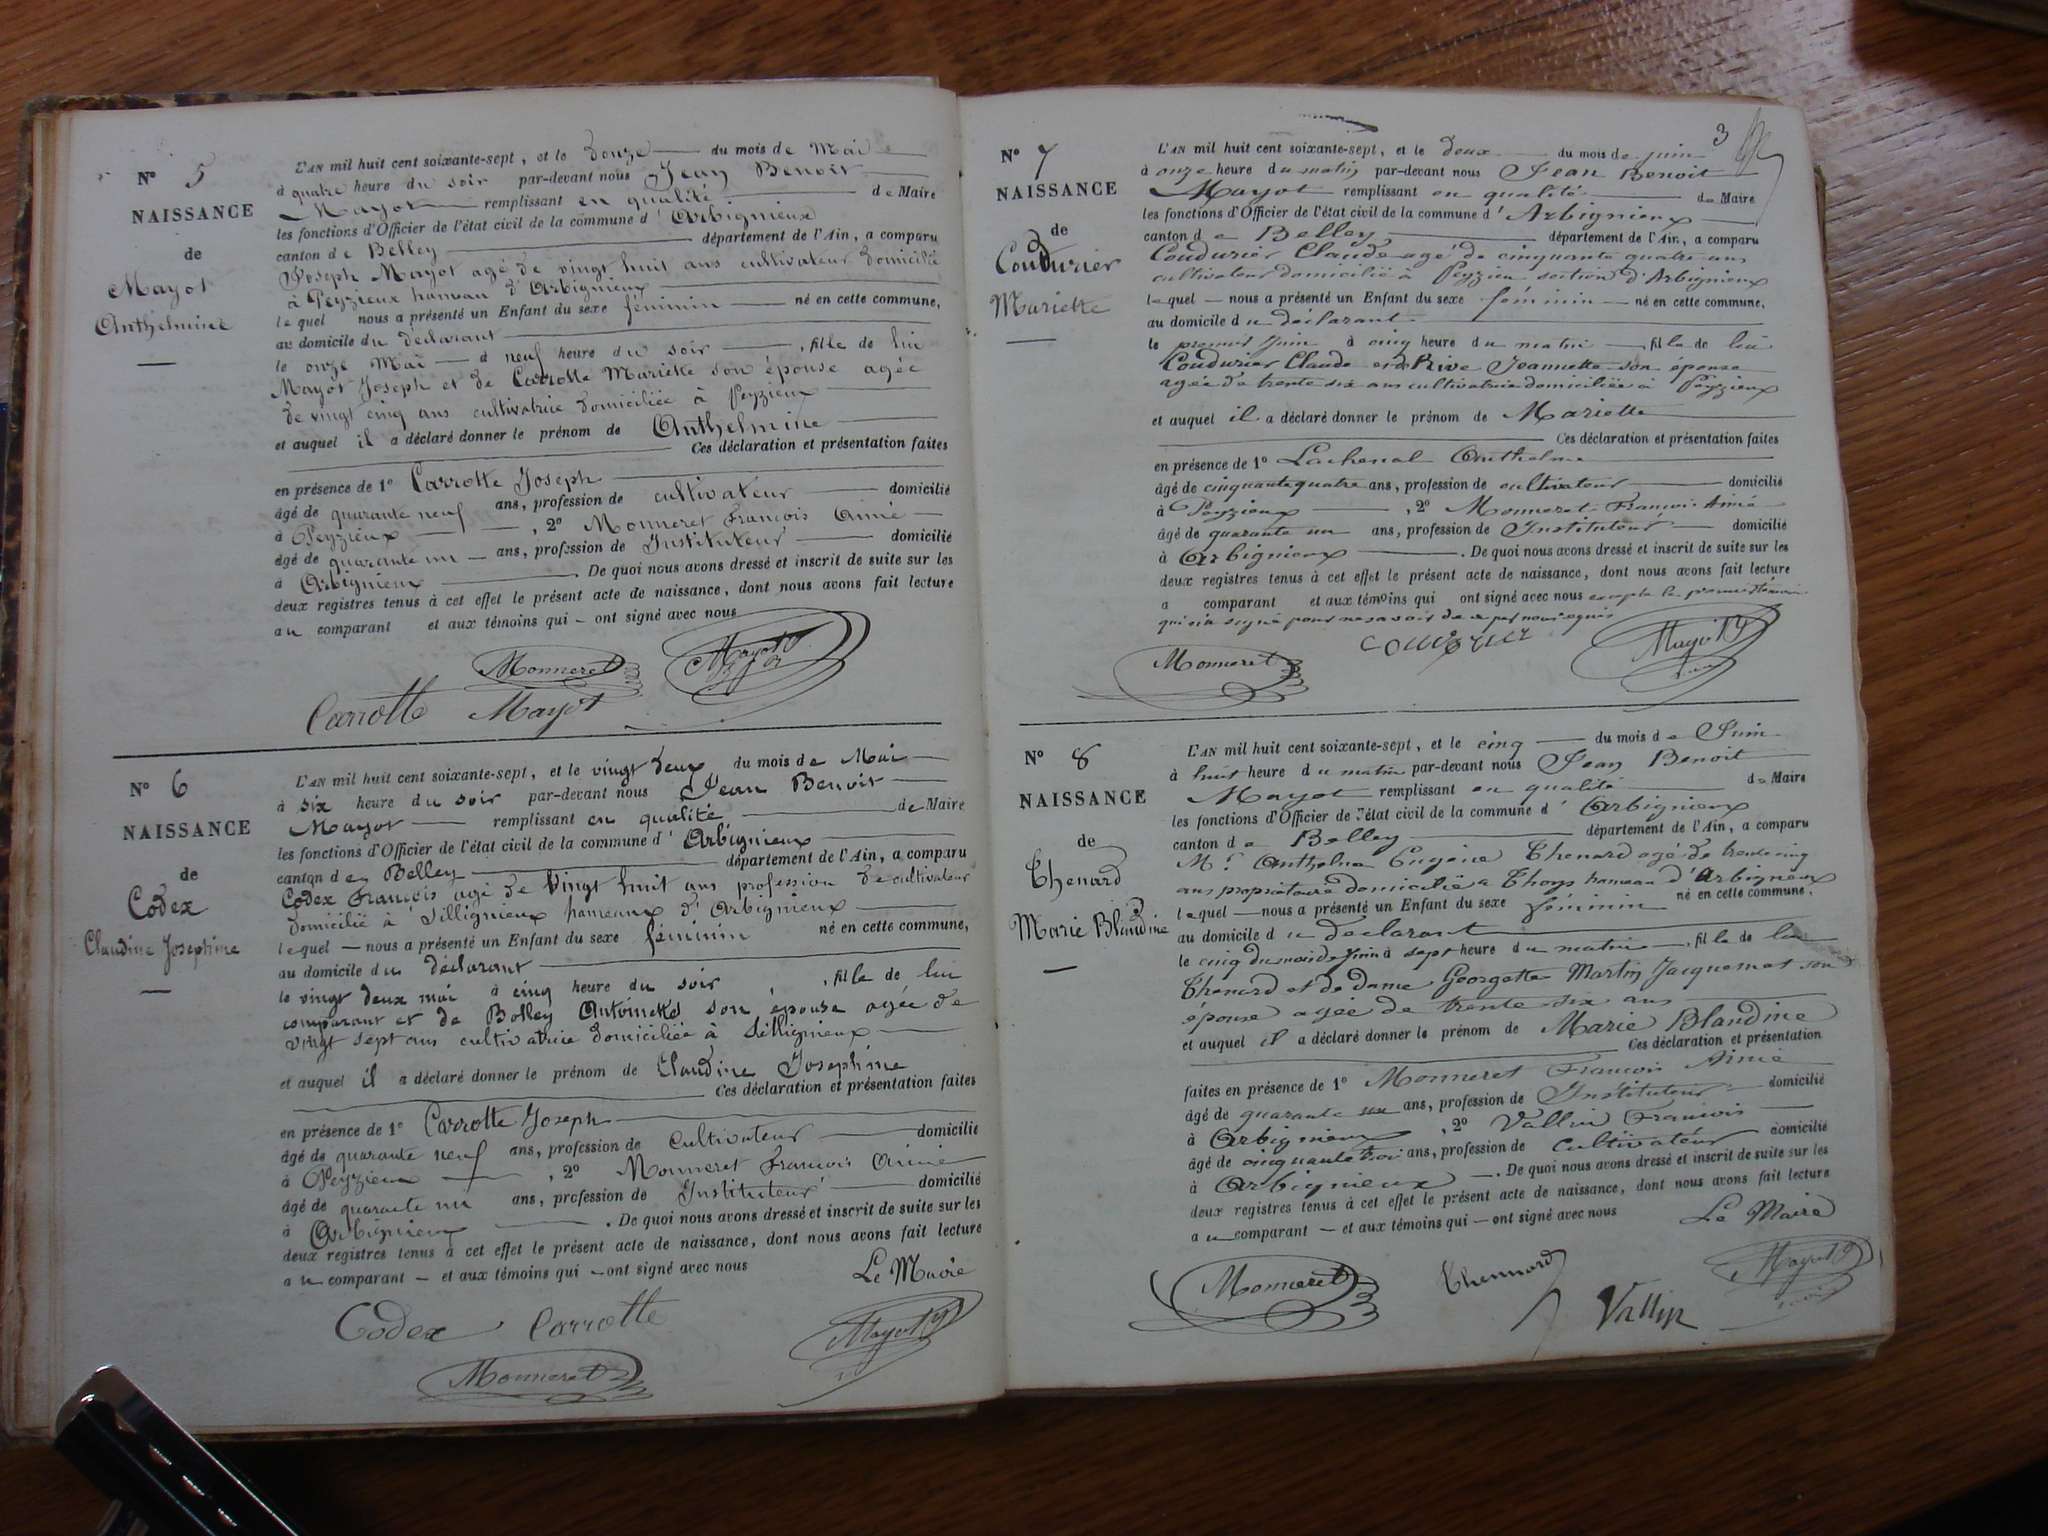 N° 5
NAISSANCE
de
Mayot
Anthelmine
L'AN mil huit cent soixante-sept, et le douze du mois de Mai
à quatre heure du soir par-devant nous Jean Benoit
Mayot remplissant en qualité de Maire
les fonctions d'Officier de l'état civil de la commune d'Arbignieux
canton de Belley département de l'Ain, a comparu
Joseph Mayot agé de vingt huit ans cultivateur domicilié
à Peyzieux hameau d'Arbignieux
lequel nous a présenté un Enfant du sexe féminin né en cette commune,
au domicile du déclarant
le onze Mai à neuf heure du soir, fille de lui
Mayot Joseph et de Carrotte Mariette son épouse agée
de vingt cinq ans cultivatrice domiciliée à Peyzieux
et auquel il a déclaré donner le prénom de Anthelmine
Ces déclaration et présentation faites
en présence de 1° Carrotte Joseph
âgé de quarante neuf ans, profession de cultivateur domicilié
à Peyzieux, 2° Monneret François Aimé
âgé de quarante un ans, profession de Instituteur domicilié
à Arbignieux. De quoi nous avons dressé et inscrit de suite sur les
deux registres tenus à cet effet le présent acte de naissance, dont nous avons fait lecture
au comparant et aux témoins qui ont signé avec nous
Monneret Mayot
Carrotte Mayot
N° 6
NAISSANCE
de
Codex
Claudine Josephine
L'AN mil huit cent soixante-sept, et le vingt deux du mois de Mai
à six heure du soir par-devant nous Jean Benoit
Mayot remplissant en qualité de Maire
les fonctions d'Officier de l'état civil de la commune d'Arbignieux
canton de Belley département de l'Ain, a comparu
Codex François agé de vingt huit ans profession de cultivateur
domicilié à Sillignieux hameaux d'Arbignieux
lequel nous a présenté un Enfant du sexe féminin né en cette commune,
au domicile du déclarant
le vingt deux mai à cinq heure du soir, fille de lui
comparant et de Bolley Antoinette son épouse agée de
vingt sept ans cultivatrice domiciliée à Sillignieux
et auquel il a déclaré donner le prénom de Claudine Josephine
Ces déclaration et présentation faites
en présence de 1° Carrotte Joseph
âgé de quarante neuf ans, profession de cultivateur domicilié
à Peyzieux, 2° Monneret François Aimé
âgé de quarante un ans, profession de Instituteur domicilié
à Arbignieux. De quoi nous avons dressé et inscrit de suite sur les
deux registres tenus à cet effet le présent acte de naissance, dont nous avons fait lecture
au comparant et aux témoins qui ont signé avec nous
Le Maire
Codex Carrotte Mayot
Monneret
3
N° 7
NAISSANCE
de
Coudurier
Mariette
L'AN mil huit cent soixante-sept, et le deux du mois de juin
à onze heure du matin par-devant nous Jean Benoit
Mayot remplissant en qualité de Maire
les fonctions d'Officier de l'état civil de la commune d'Arbignieux
canton de Belley département de l'Ain, a comparu
Coudurier Claude agé de cinquante quatre ans
cultivateur domicilié à Peyzieu section d'Arbignieux
lequel nous a présenté un Enfant du sexe féminin né en cette commune,
au domicile du déclarant
le premier juin à cinq heure du matin, fille de lui
Coudurier Claude et de Rive Jeannette son épouse
agée de trente six ans cultivatrice domiciliée à Peyzieux
et auquel il a déclaré donner le prénom de Mariette
Ces déclaration et présentation faites
en présence de 1° Lachenal Anthelme
âgé de cinquante quatre ans, profession de cultivateur domicilié
à Peyzieux, 2° Monneret François Aimé
âgé de quarante un ans, profession de Instituteur domicilié
à Arbignieux. De quoi nous avons dressé et inscrit de suite sur les
deux registres tenus à cet effet le présent acte de naissance, dont nous avons fait lecture
a comparant et aux témoins qui ont signé avec nous excepté le premier témoin
qui n'a signé pour ne savoir de ce par nous requis
Monneret coudurier Mayot
N° 8
NAISSANCE
de
Thenard
Marie Blandine
L'AN mil huit cent soixante-sept, et le cinq du mois de Juin
à huit heure du matin par-devant nous Jean Benoit
Mayot remplissant en qualité de Maire
les fonctions d'Officier de l'état civil de la commune d'Arbignieux
canton de Belley département de l'Ain, a comparu
Mr. Anthelme Eugène Thenard agé de trente cinq
ans propriétaire domicilié à Thoys hameau d'Arbignieux
lequel nous a présenté un Enfant du sexe féminin né en cette commune,
au domicile du déclarant
le cinq du mois de Juin à sept heure du matin, fille de lui
Thenard et de dame Georgette Martin Jacquemet son
épouse agée de trente six ans
et auquel il a déclaré donner le prénom de Marie Blandine
Ces déclaration et présentation
faites en présence de 1° Monneret François Aimé
âgé de quarante ans, profession de Instituteur domicilié
à Arbignieux, 2° Vallin François
âgé de cinquante trois ans, profession de cultivateur domicilié
à Arbignieux. De quoi nous avons dressé et inscrit de suite sur les
deux registres tenus à cet effet le présent acte de naissance, dont nous avons fait lecture
au comparant et aux témoins qui ont signé avec nous
Le Maire
Monneret Thennard Vallin Mayot